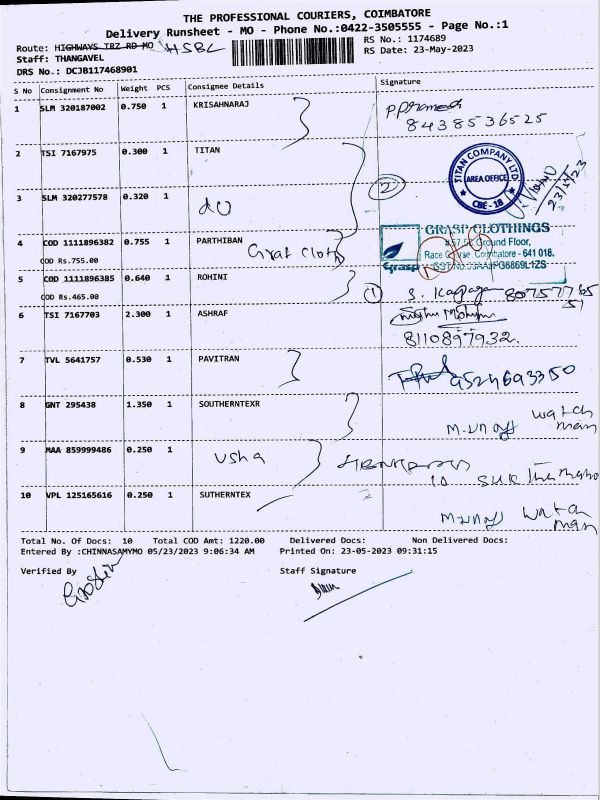 THE PROFESSIONAL COURIERS, COIMBATORE
Delivery Runsheet - MO - Phone No.:0422-3505555 - Page No.:1
Route: HIGHWAYS TRZ RD MO HSBC
RS No.: 1174689
Staff: THANGAVEL
RS Date: 23-May-2023
DRS No.: DCJB117468901
S No Consignment No Weight PCS Consignee Details Signature
1 SLM 320187002 0.750 1 KRISAHNARAJ
8438536525
2 TSI 7167975 0.300 1 TITAN
TITAN COMPANY LTD
AREA OFFICE
CBE - 18
3 SLM 320277578 0.320 1 do
4 COD 1111896382 0.755 1 PARTHIBAN
COD Rs.755.00
GRASP CLOTHINGS
Ground Floor,
Race Course, Coimbatore - 641 018.
Grasp
5 COD 1111896385 0.640 1 ROHINI
COD Rs.465.00
6 TSI 7167703 2.300 1 ASHRAF
8110897932.
7 TVL 5641757 0.530 1 PAVITRAN
9524693350
8 GNT 295438 1.350 1 SOUTHERNTEXR
watch
man
9 MAA 859999486 0.250 1 Usha
10 VPL 125165616 0.250 1 SUTHERNTEX
watch
man
Total No. Of Docs: 10 Total COD Amt: 1220.00 Delivered Docs: Non Delivered Docs:
Entered By :CHINNASAMYMO 05/23/2023 9:06:34 AM Printed On: 23-05-2023 09:31:15
Verified By Staff Signature